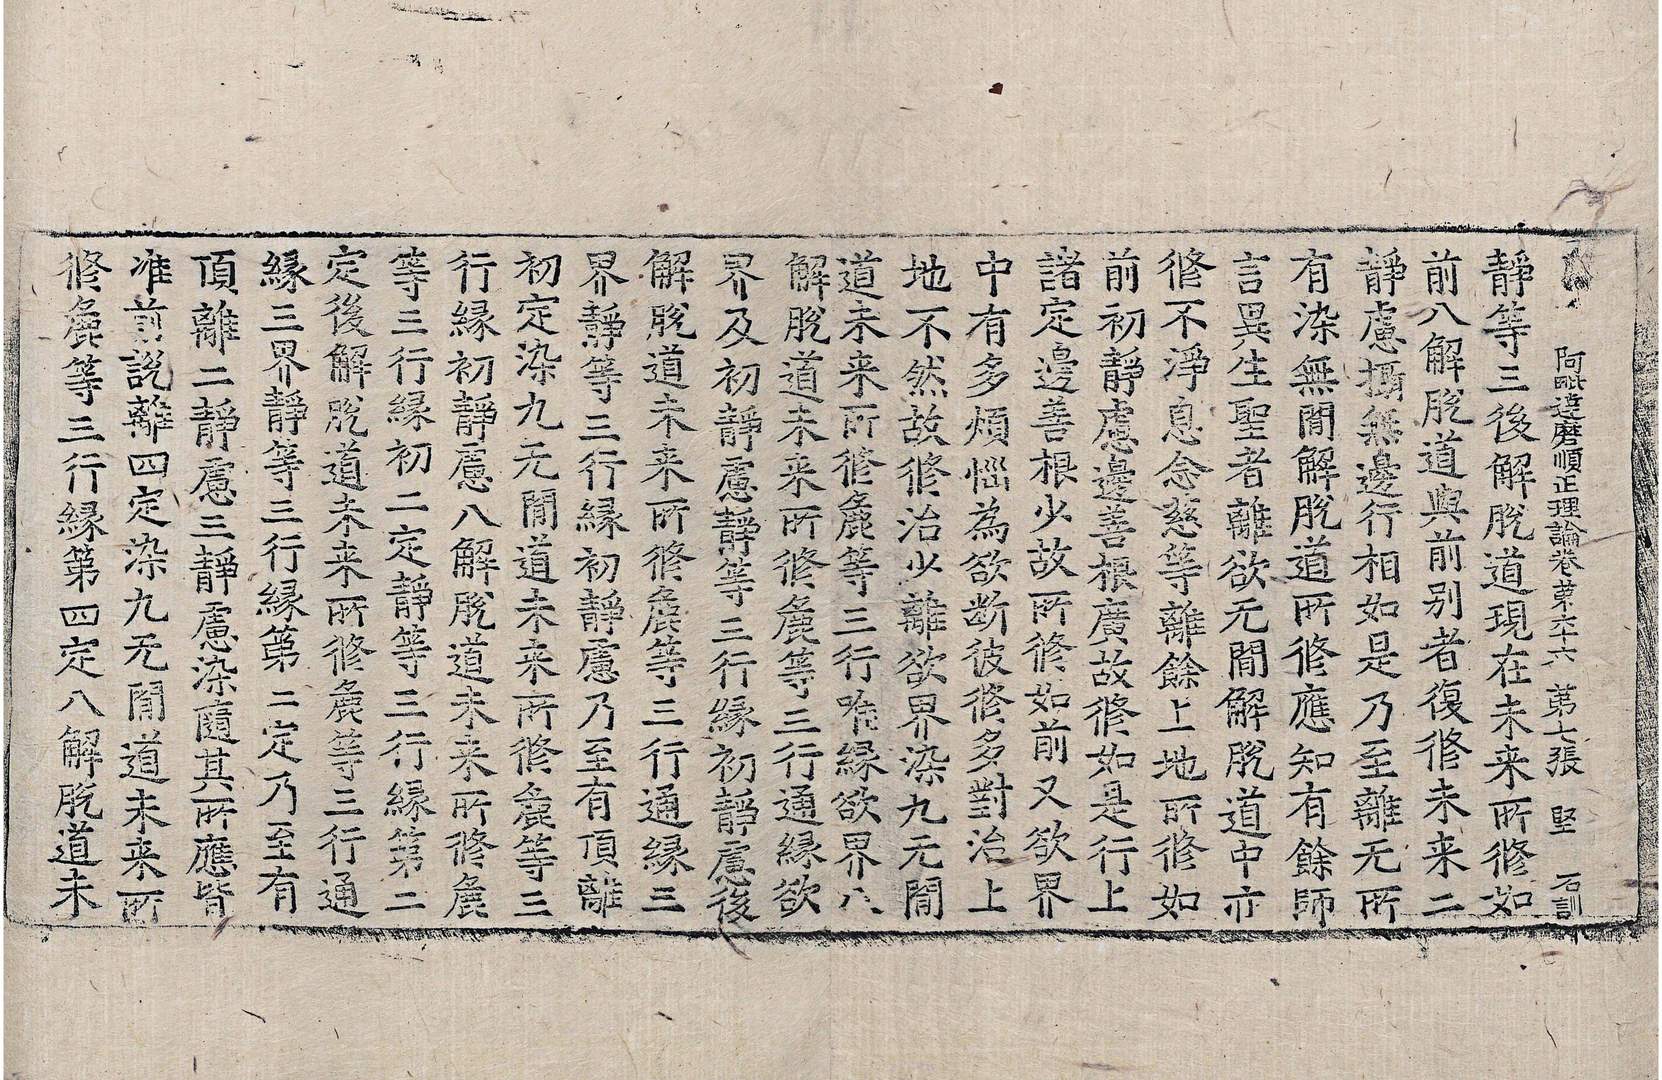 阿毗達磨順正理論卷第六十六 第七張 堅 石訓
靜等三後解脫道現在未来所修如
前八解脫道與前別者復修未来二
靜慮攝無邊行相如是乃至離无所
有染無閒解脫道所修應知有餘師
言異生聖者離欲无閒解脫道中亦
修不淨息念慈等離餘上地所修如
前初靜慮邊善根廣故修如是行上
諸定邊善根少故所修如前又欲界
中有多煩惱為欲断彼修多對治上
地不然故修治少離欲界染九无閒
道未来所修麁等三行唯緣欲界八
解脫道未来所修麁等三行通緣欲
界及初靜慮靜等三行緣初靜慮後
解脫道未来所修麁等三行通緣三
界靜等三行緣初靜慮乃至有頂離
初定染九无閒道未来所修麁等三
行緣初靜慮八解脫道未来所修麁
等三行緣初二定靜等三行緣第二
定後解脫道未来所修麁等三行通
緣三界靜等三行緣第二定乃至有
頂離二靜慮三靜慮染隨其所應皆
准前說離四定染九无閒道未来所
修麁等三行緣第四定八解脫道未